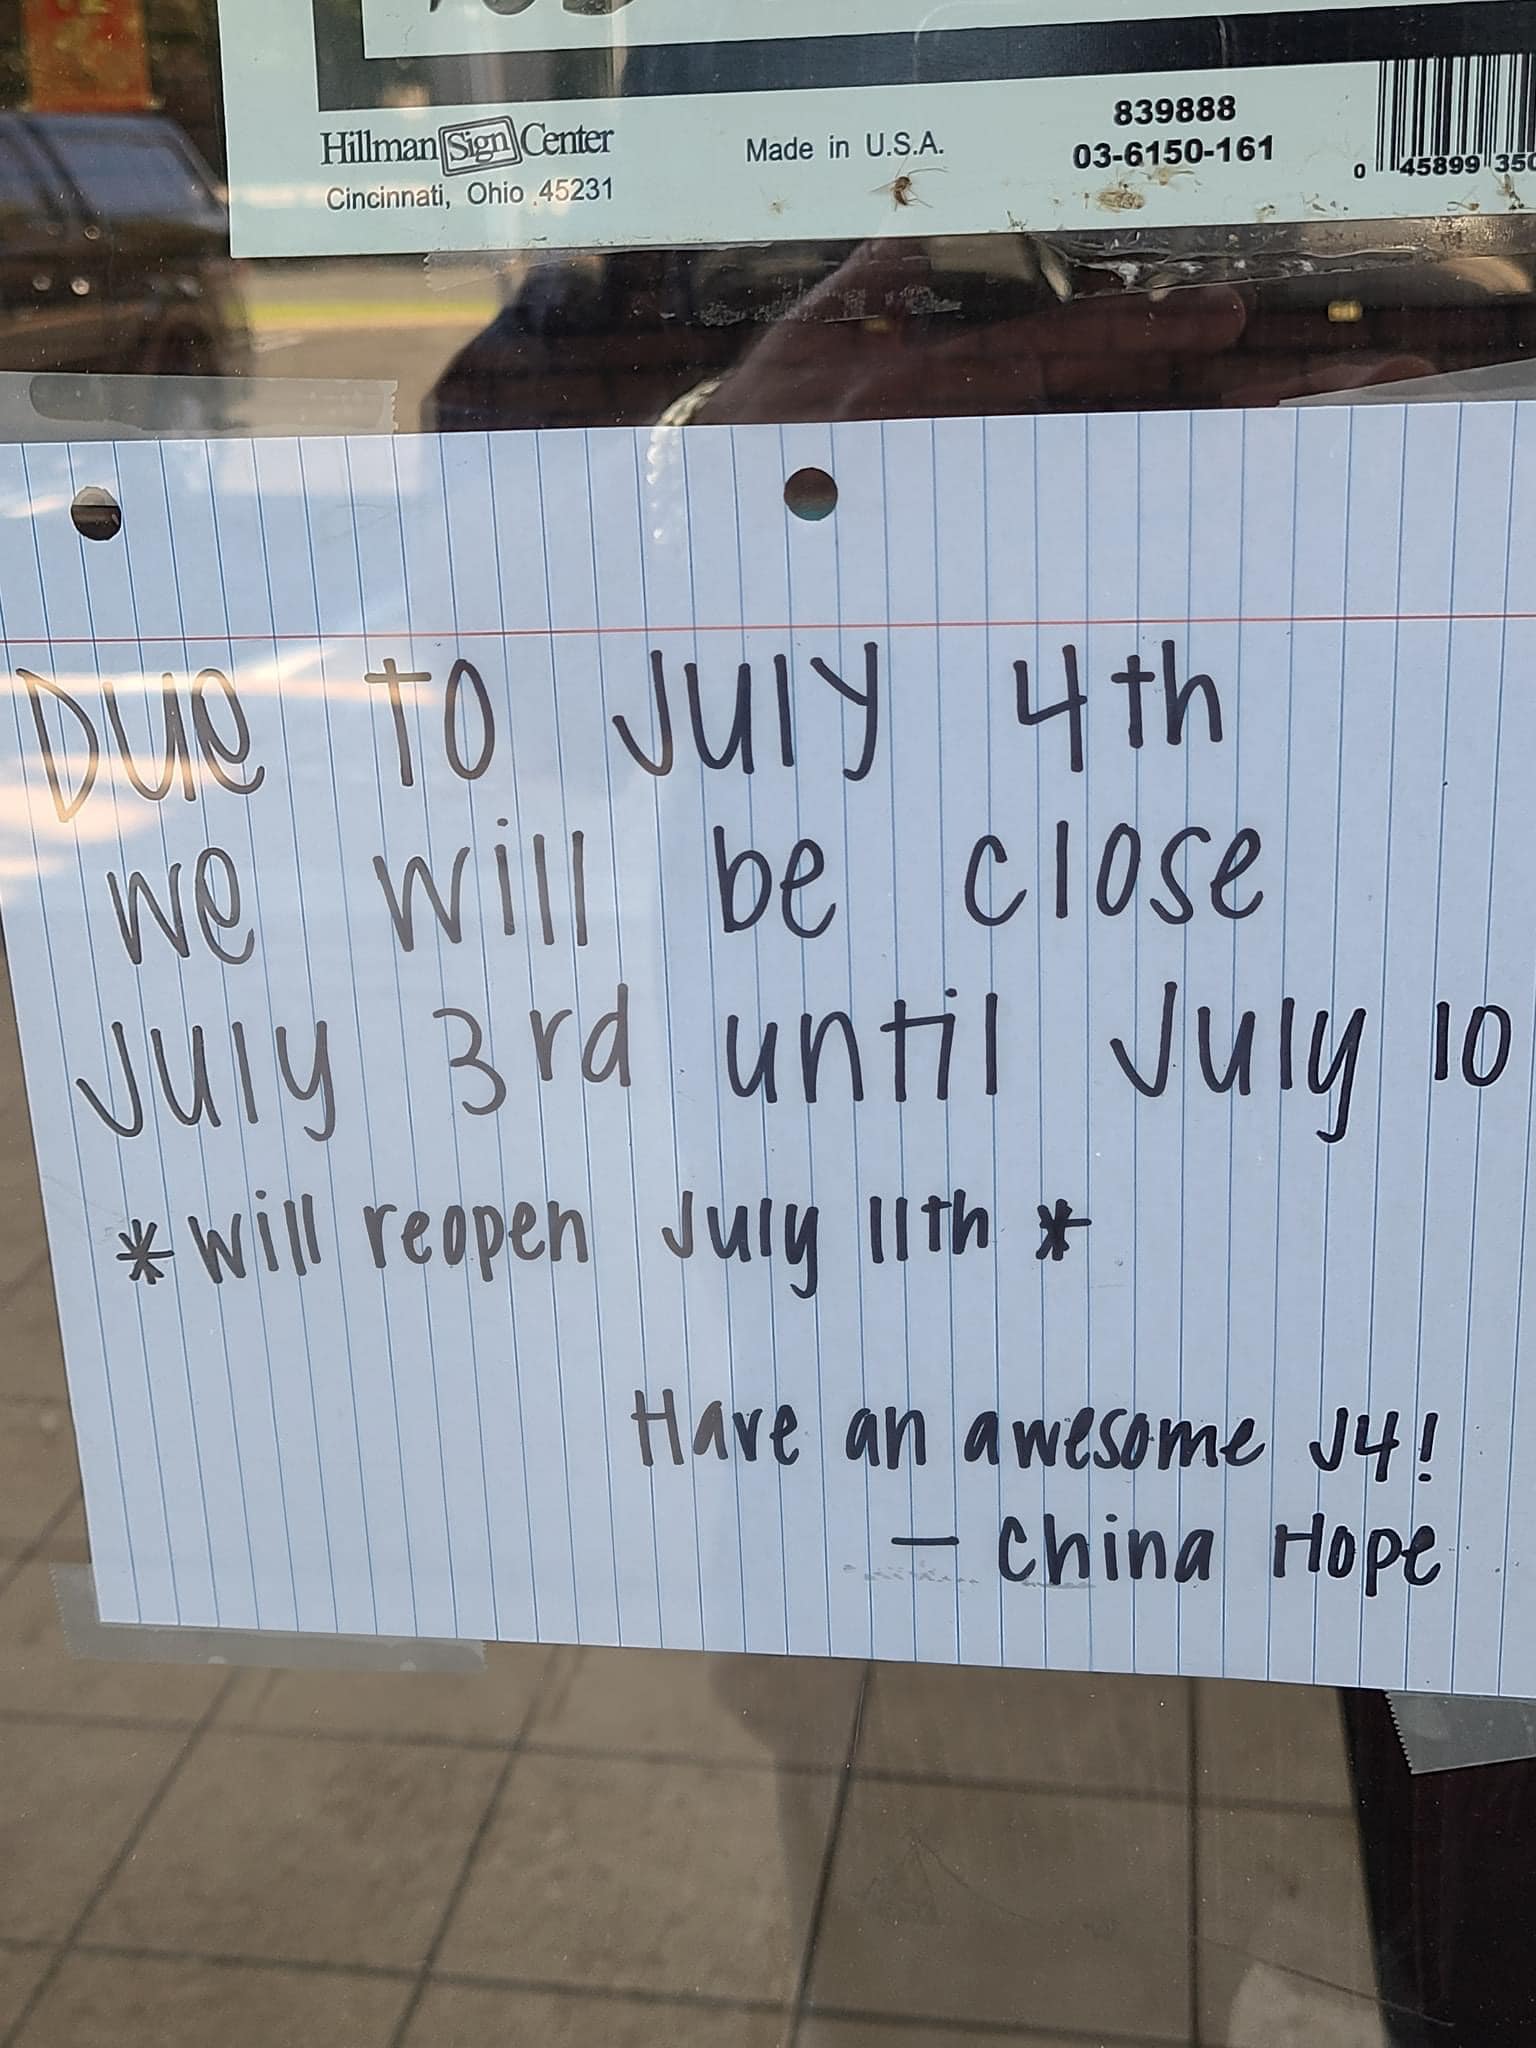 Hillman Sign Center
Cincinnati, Ohio 45231
Made in U.S.A.
839888
03-6150-161
0 45899 350
Due to July 4th
we will be close
July 3rd until July 10
*will reopen July 11th*
Have an awesome J4!
- China Hope